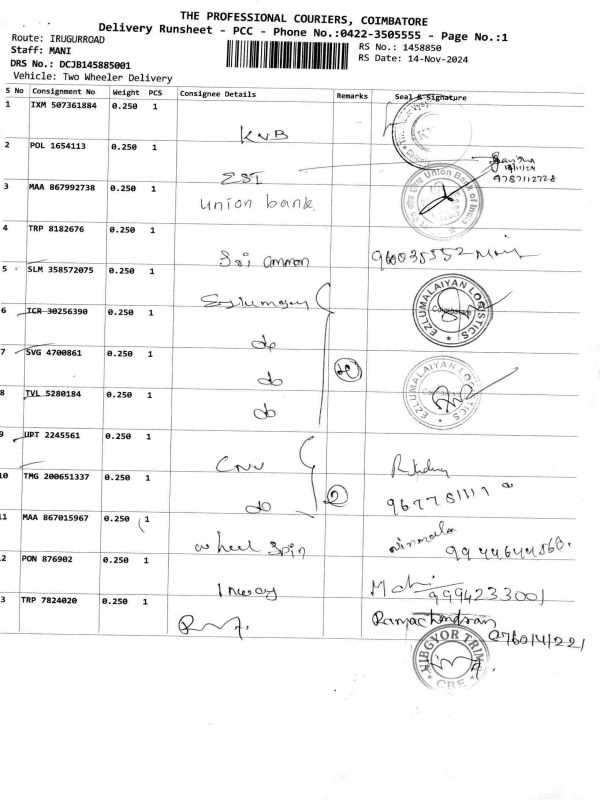 THE PROFESSIONAL COURIERS, COIMBATORE
Delivery Runsheet - PCC - Phone No.:0422-3505555 - Page No.:1
Route: IRUGURROAD
RS No.: 1458850
Staff: MANI
RS Date: 14-Nov-2024
DRS No.: DCJB145885001
Vehicle: Two Wheeler Delivery
S No Consignment No Weight PCS Consignee Details Remarks Seal & Signature
1 IXM 507361884 0.250 1 KVB
2 POL 1654113 0.250 1 ESI
9787112728
3 MAA 867992738 0.250 1 union bank Union Bank of India
4 TRP 8182676 0.250 1 Sri amman 960035552 Mani
5 SLM 358572075 0.250 1 EZLUMALAIYAN LOGISTICS Coimbatore
6 TCR 30256390 0.250 1 do
7 SVG 4700861 0.250 1 do EZLUMALAIYAN LOGISTICS
8 TVL 5280184 0.250 1 do
9 UPT 2245561 0.250 1
10 TMG 200651337 0.250 1 do 2
11 MAA 867015967 0.250 1 wheel spin nirmala
12 PON 876902 0.250 1 9994233001
3 TRP 7824020 0.250 1 Ramachandran
VIBGYOR TRIMS CBE